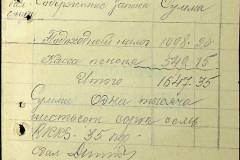 Содержание записи Сумма
Подоходный налог 1098.20
Касса 549.15
Итого 1647.35
Сумма одна тысяча
шестьсот сорок семь
35
Сдал